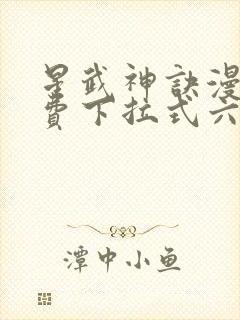 星武神訣漫
費下拉式六
潭中小鱼